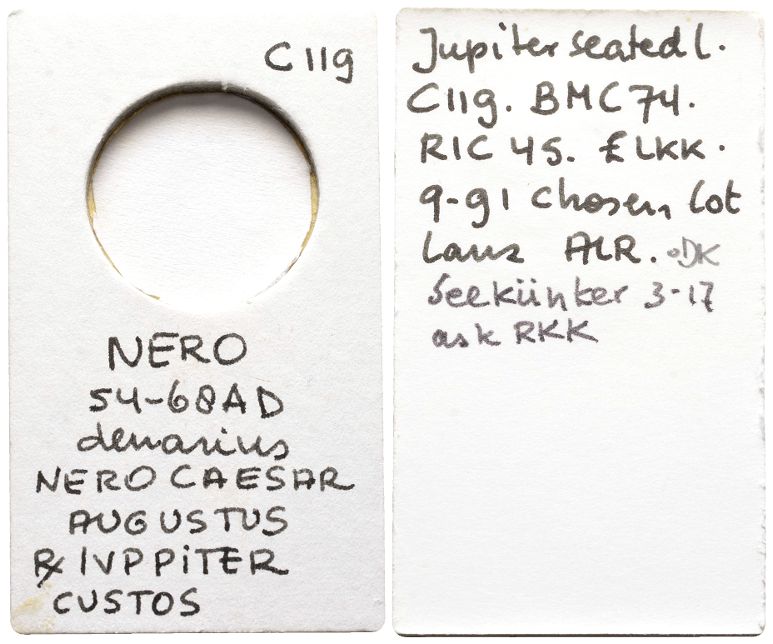 C 119
NERO
54-68AD
denarius
NERO CAESAR
AUGUSTUS
℞ IVPPiTER
CUSTOS
Jupiter seated l.
C119. BMC 74.
RIC 45. £LKK.
9-91 Chosen, lot
Lanz ALR. DK
Seekünker 3-17
ask RKK